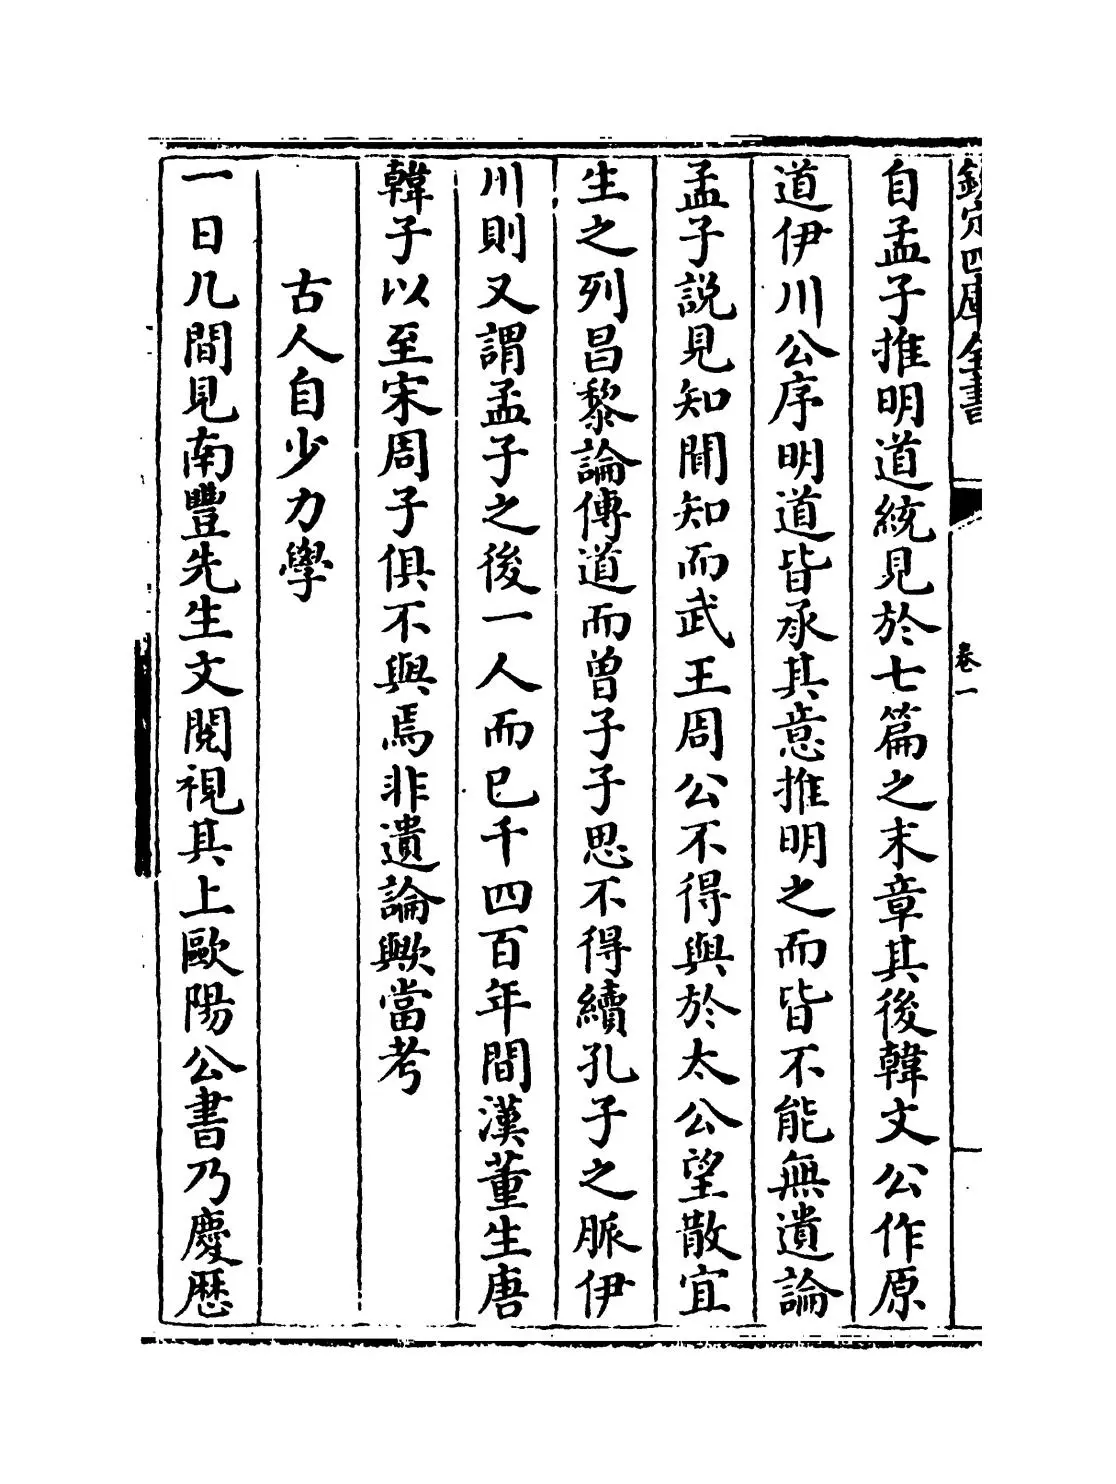 欽定四庫全書
卷一
自孟子推明道統見於七篇之末章其後韓文公作原
道伊川公序明道皆承其意推明之而皆不能無遺論
孟子説見知聞知而武王周公不得與於太公望散宜
生之列昌黎論傳道而曾子子思不得續孔子之脈伊
川則又謂孟子之後一人而已千四百年間漢董生唐
韓子以至宋周子俱不與焉非遺論歟當考
古人自少力學
一日几間見南豐先生文閱視其上歐陽公書乃慶厯